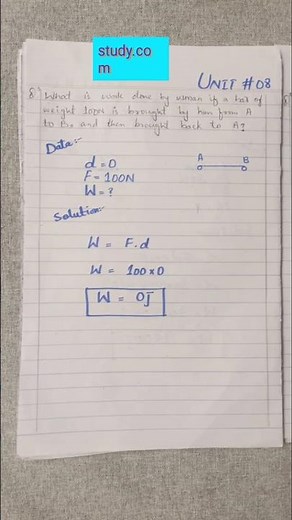 study.co
m
UNIT #08
8) What is work done by woman if a box of
weight 100N is brought by him from A
to B, and then brought back to A?
Data:-
A B
d = 0
F = 100N
W = ?
Solution:-
W = F.d
W = 100×0
W = 0J